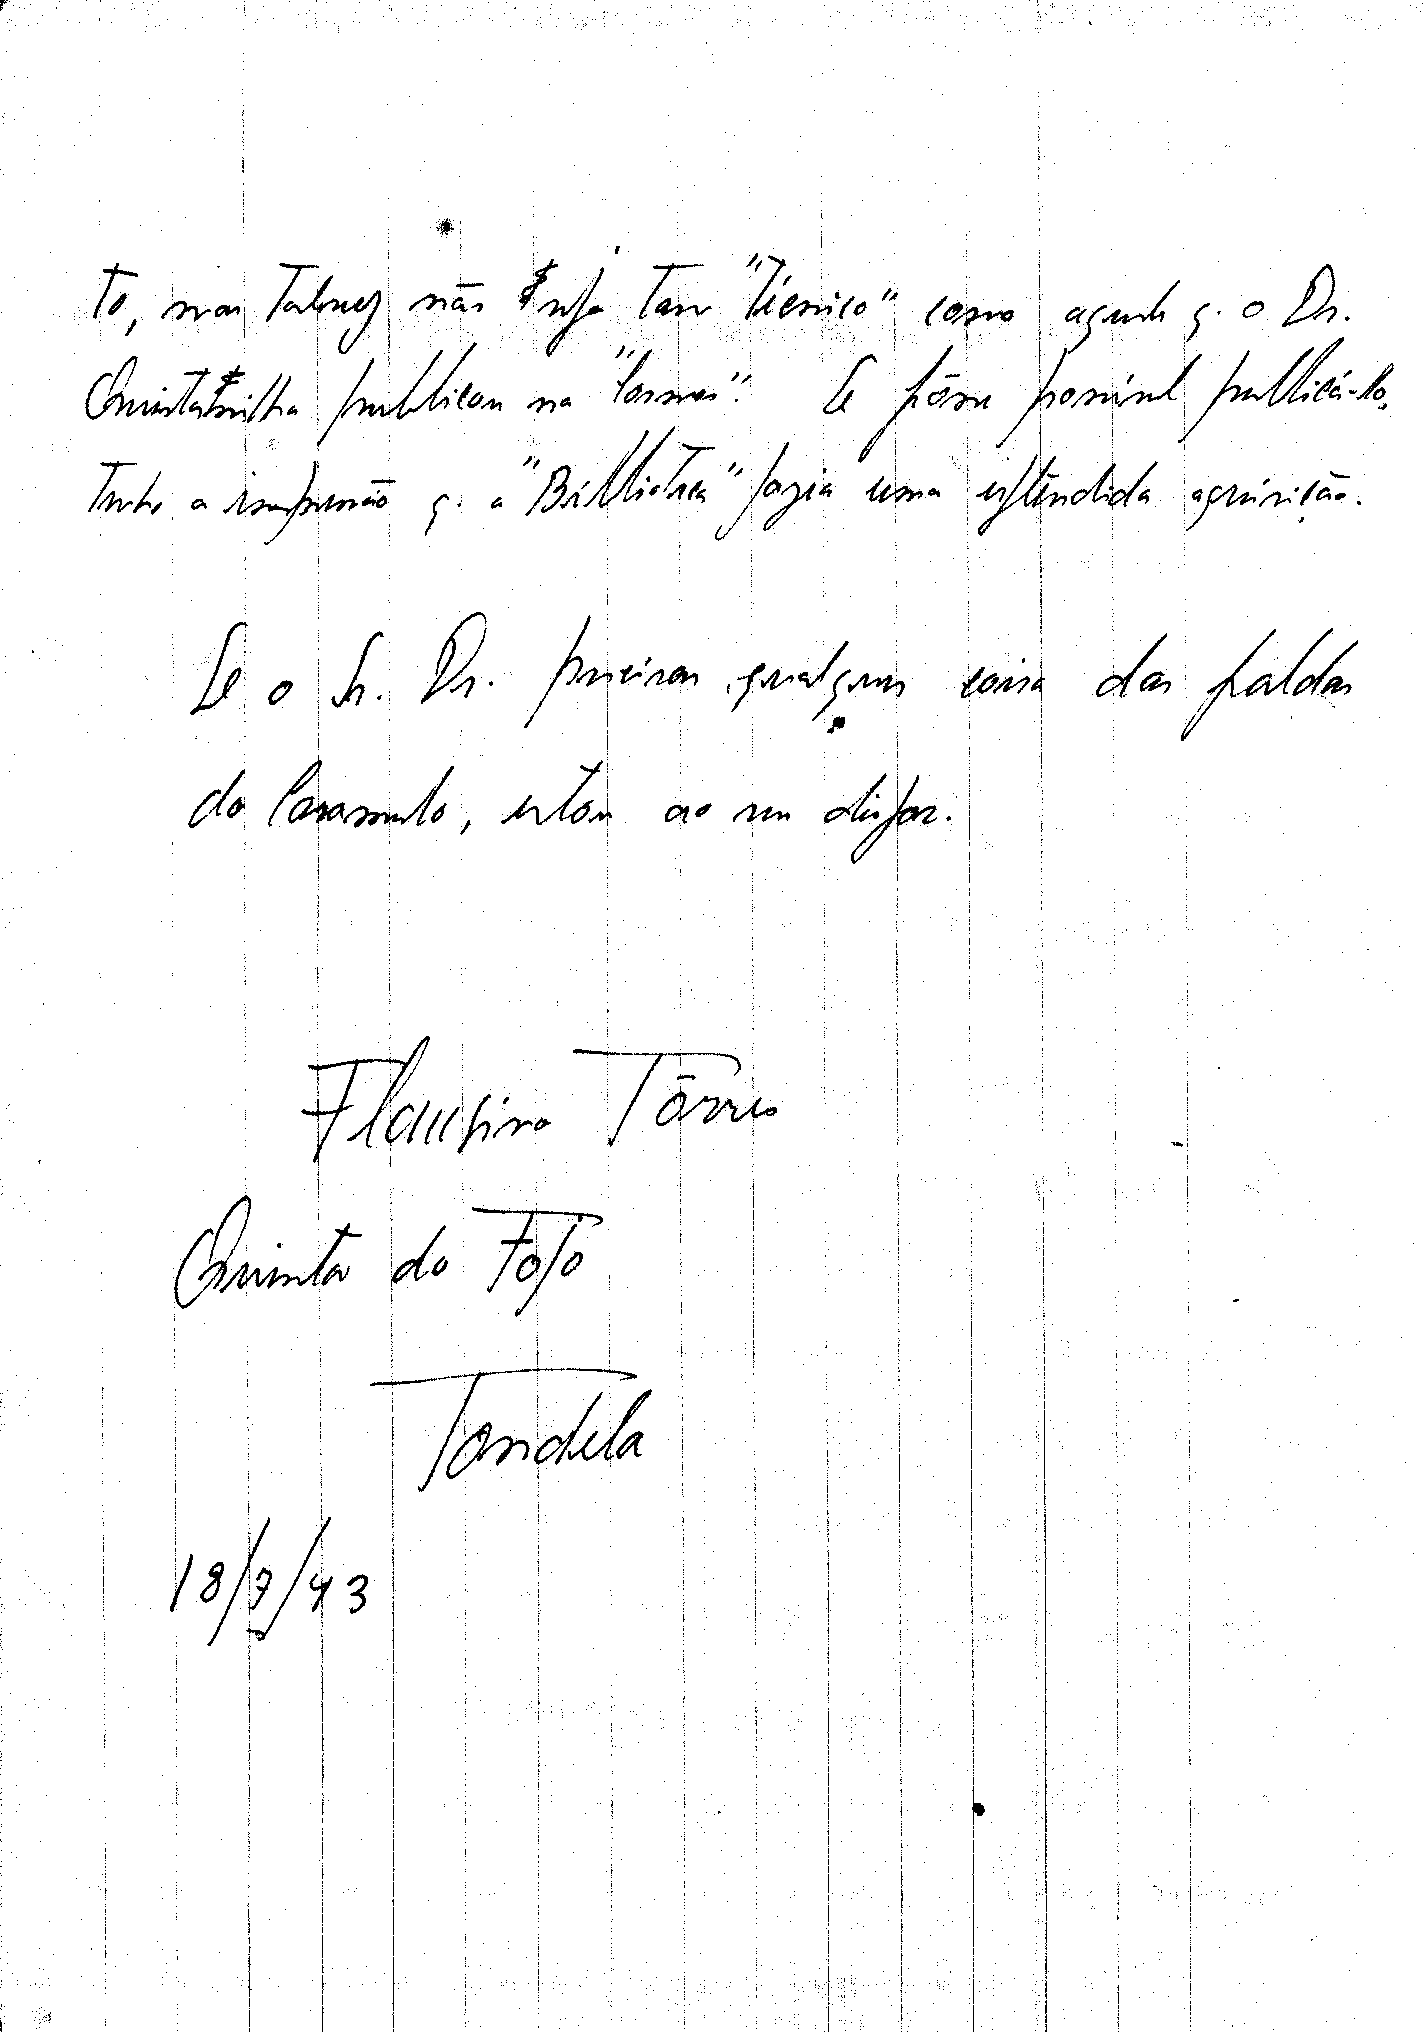 to, mas talvez não seja tam "técnico" como aquele q. o Dr.
Quintanilha publicou na "Cosmos". Se fôsse possível publicá-lo,
tenho a impressão q. a "Biblioteca" fazia uma esplêndida aquisição.
Se o Sr. Dr. precisar qualquer coisa das faldas
do Caramulo, estou ao seu dispor.
Flausino Tôrres
Quinta do Fojo
Tondela
18/7/43